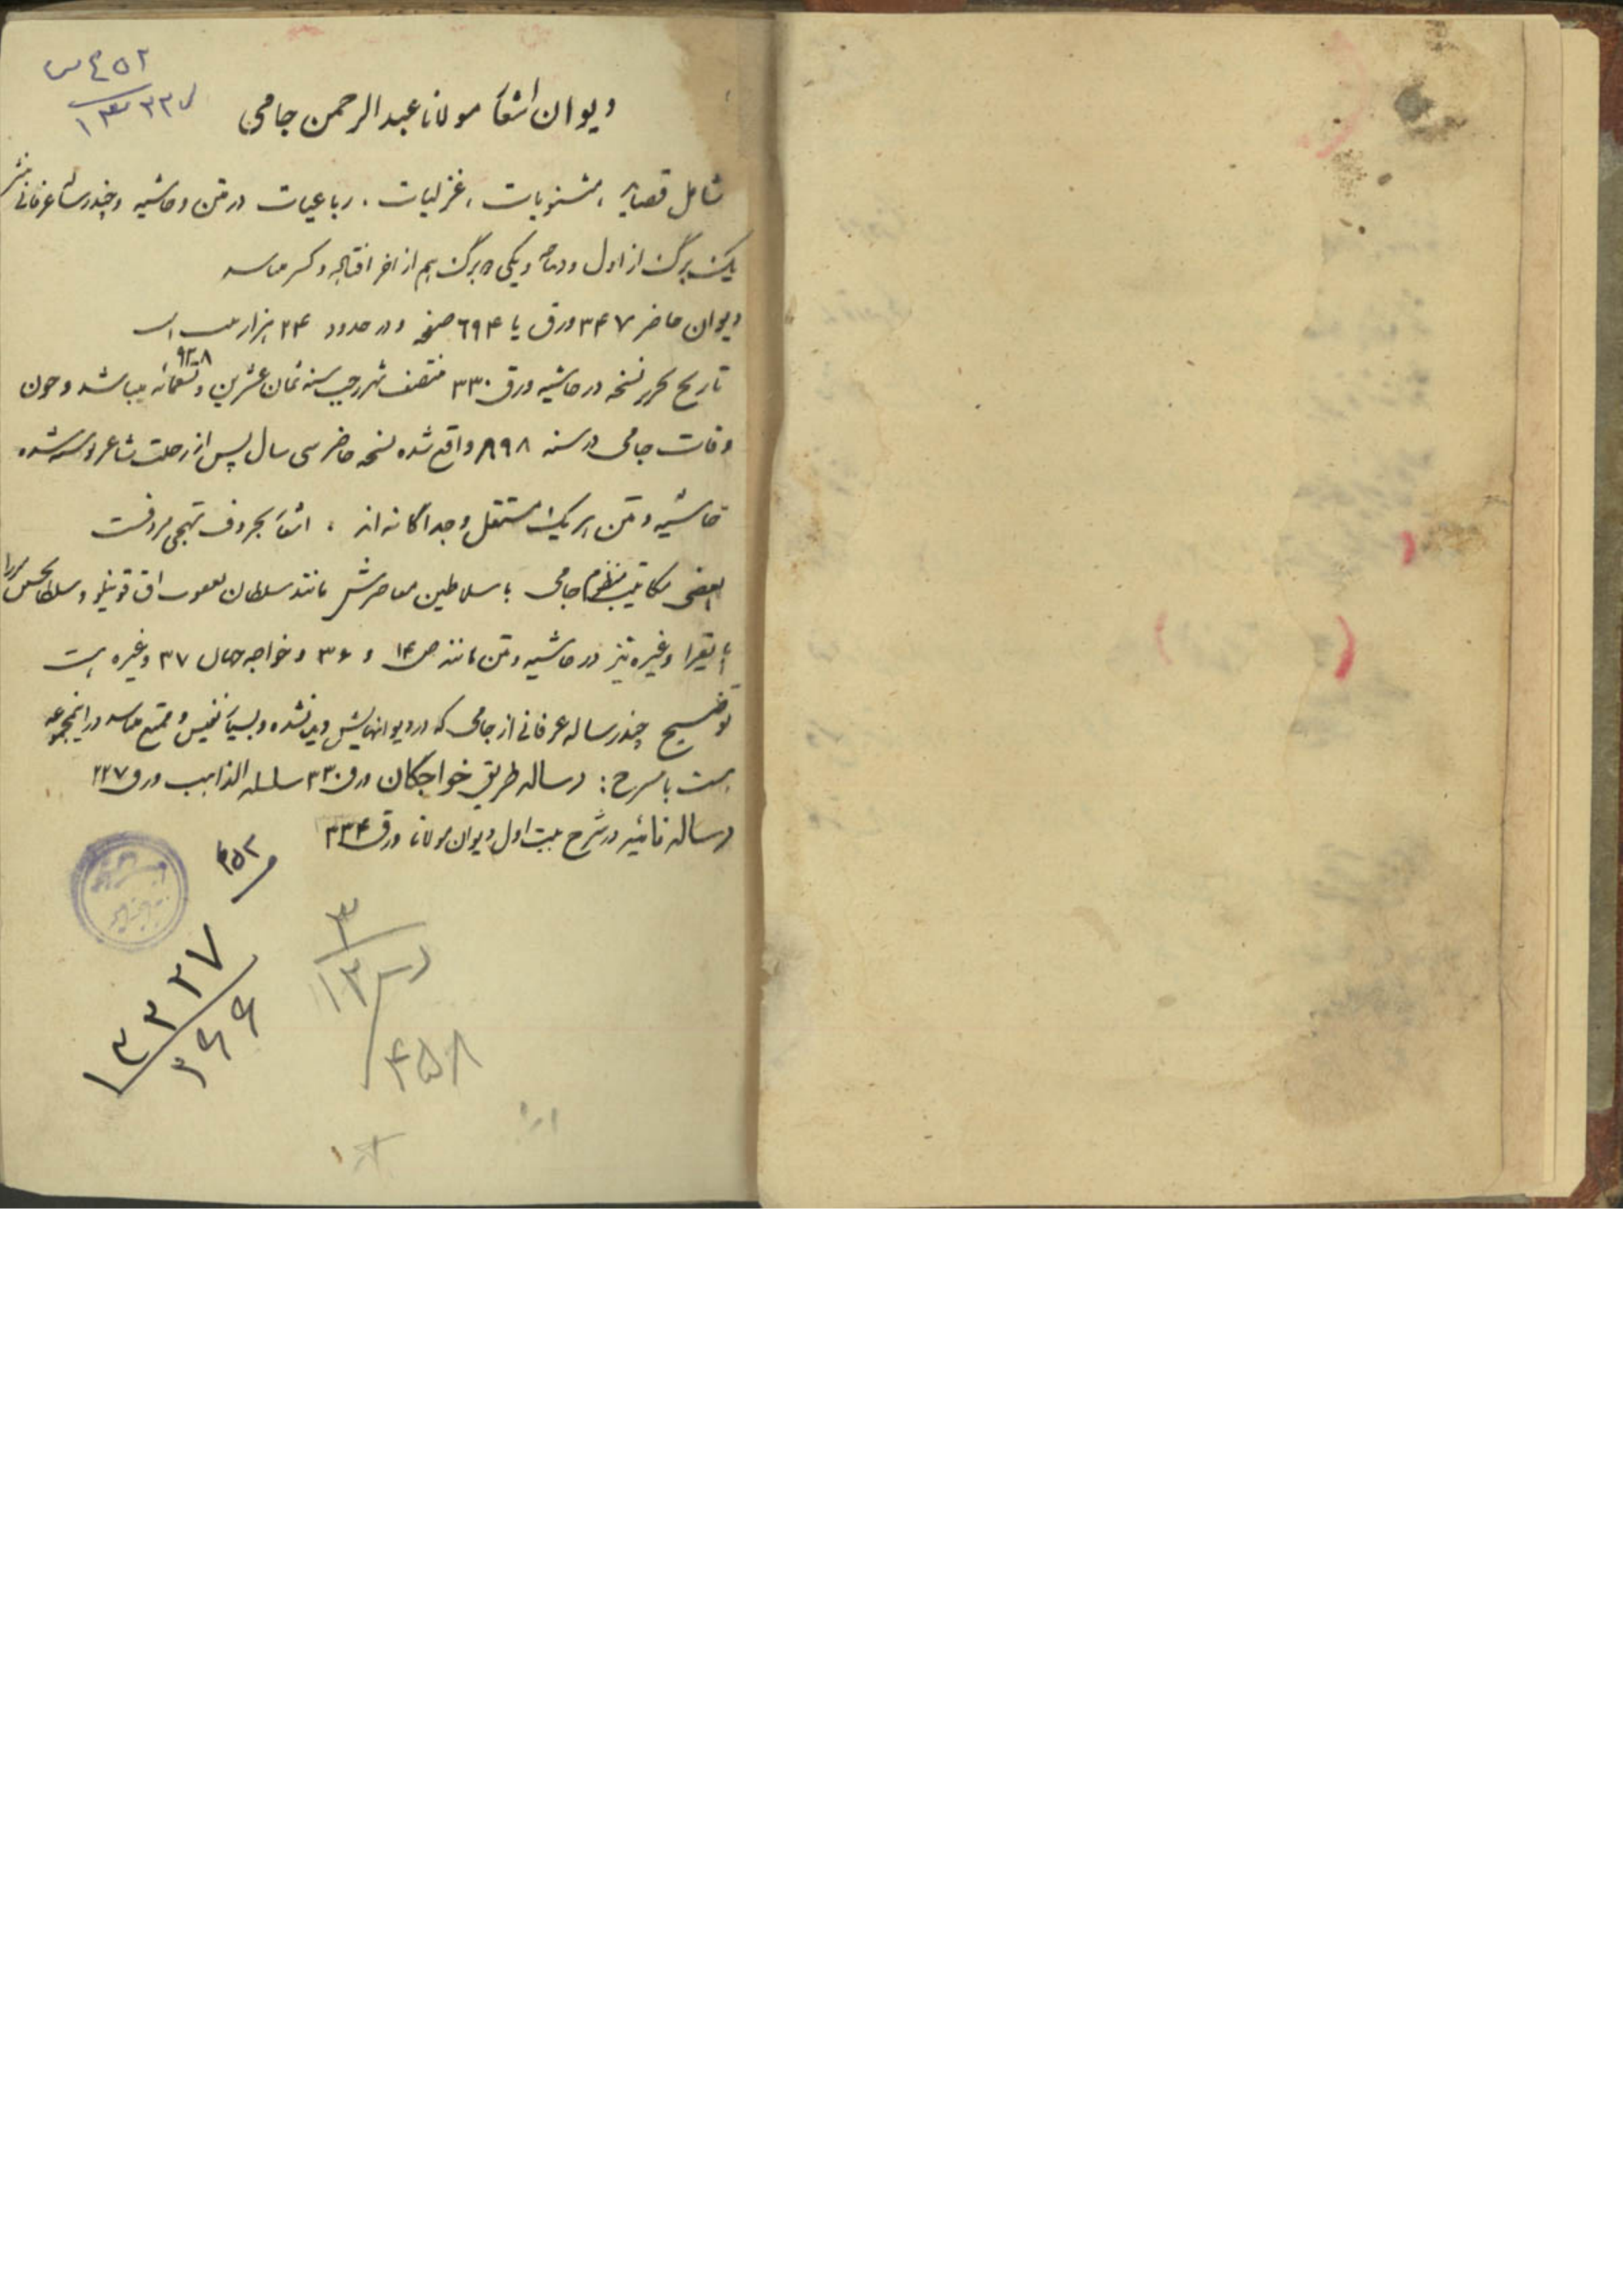 ۴۵۲ س
دیوان اشعار مولانا عبدالرحمن جامی
شامل قصاید ، مثنویات ، غزلیات ، رباعیات در متن و حاشیه و چند رساله عرفانی
یک برگ از اول و یکی برگ هم از اخر افتاده و کسر
دیوان حاضر ۳۴۷ ورق یا ۶۹۴ صفحه و در حدود ۲۴ هزار بیت است
۹۲۸
تاریخ تحریر نسخه در حاشیه ورق ۳۳۰ منتصف شهر رجب سنه ثمان عشرین و تسعمائه میباشد و چون
وفات جامی در سنه ۸۹۸ واقع شده نسخه حاضر سی سال پس از رحلت شاعر نوشته شده
حاشیه و متن هر یک مستقل و جداگانه اند ، اشعار بحروف تهجی مردفست
بعضی مکاتیب منظوم جامی با سلاطین معاصرش مانند سلطان یعقوب اق قوینلو و سلطان حسین میرزا
بایقرا و غیره نیز در حاشیه و متن مانند ص ۱۴ و ۳۶ و خواجه جهان ۳۷ و غیره هست
توضیح چند رساله عرفانی از جامی که در دیوانهایش دیده نشده و بسیار نفیس و ممتع در این مجموعه
هست باشرح : رساله طریق خواجگان ورق ۳۳۰ سلسلة الذاهب ورق ۲۲۷
رساله نائیه در شرح بیت اول دیوان مولانا ورق ۳۳۴
۴۵۲
۱۳۳۲۷
۳
۱۳
۴۵۸